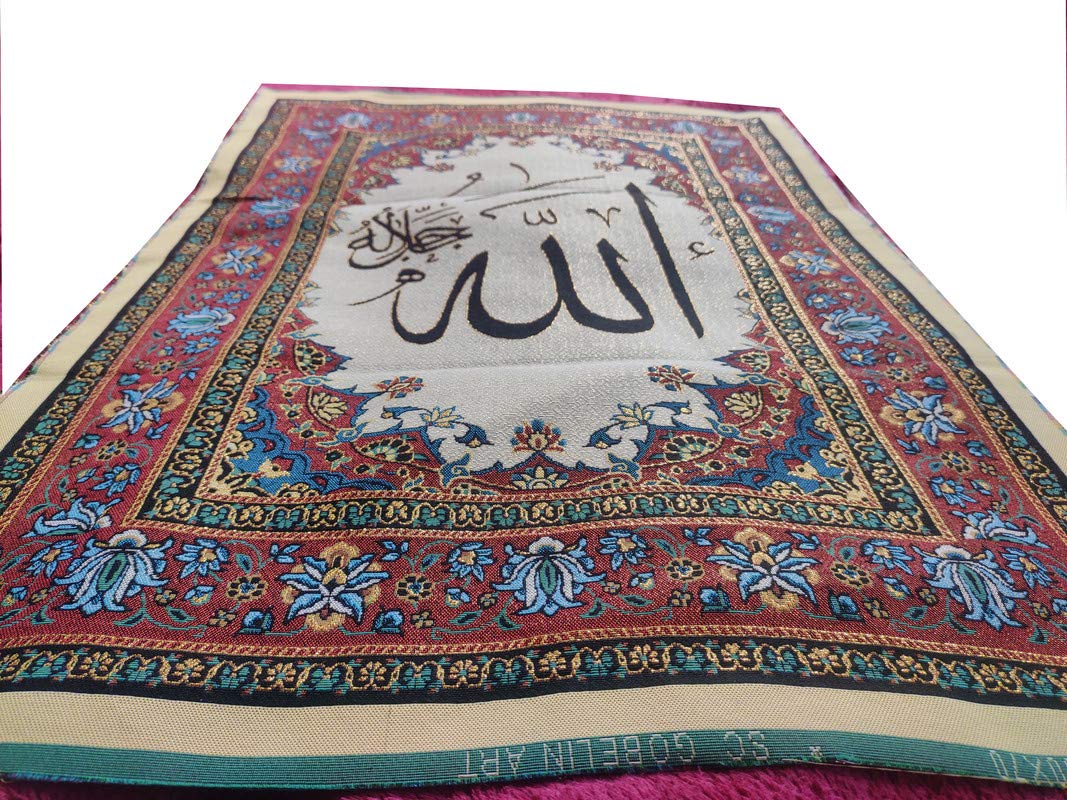 الله
جل جلاله
SC GOBELIN ART